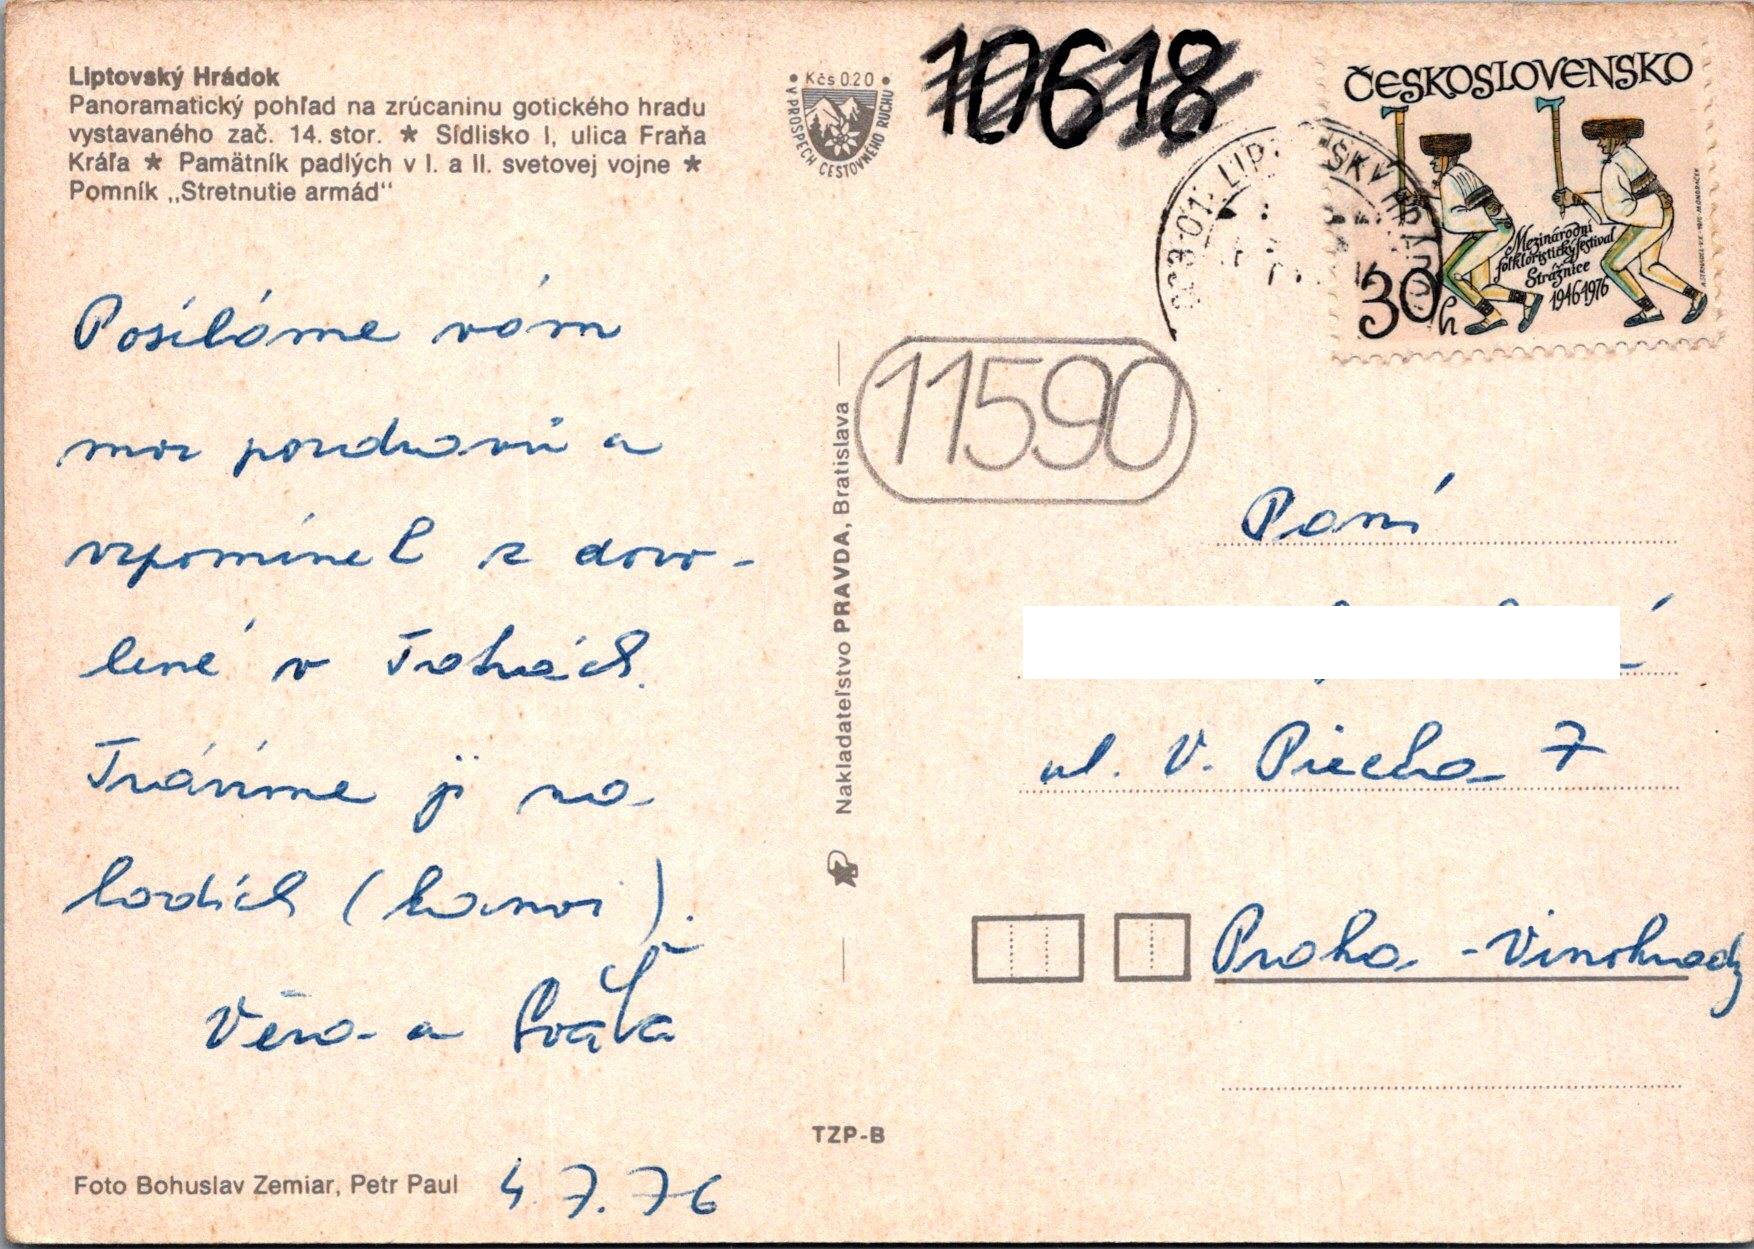 Liptovský Hrádok
Panoramatický pohľad na zrúcaninu gotického hradu
vystavaného zač. 14. stor. ★ Sídlisko I, ulica Fraňa
Kráľa ★ Pamätník padlých v I. a II. svetovej vojne ★
Pomník „Stretnutie armád“
• Kčs 0.20 •
V PROSPECH CESTOVNÉHO RUCHU
10618
ČESKOSLOVENSKO
Mezinárodní
folkloristický festival
Strážnice
1946-1976
30h
033 01 LIPTOVSKÝ HRÁDOK
11590
Posíláme vám
moc pozdravů a
vzpomínek z dovo-
lené v Tatrách.
Trávíme ji na
lodích (kanoi).
Věra a
4.7.76
Nakladateľstvo PRAVDA, Bratislava
Paní
ul. V. Piecka 7
Praha - Vinohrady
TZP-B
Foto Bohuslav Zemiar, Petr Paul